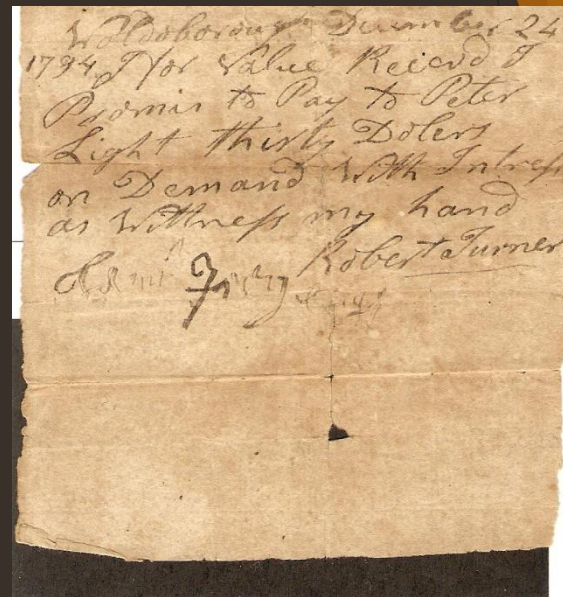 Woldoborough December 24
1794 For Value Reiced I
Promis to Pay to Peter
Light thirty Dolers
on Demand With Intress
as Wittness my hand
Robert Turner